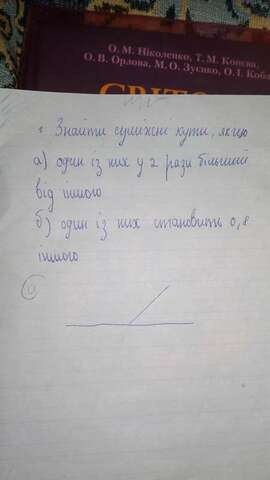 О. М. Ніколенко, Т. М. Конєва,
О. В. Орлова, М. О. Зуєнко, О. І. Коб
СВІТО
1 Знайти суміжні кути, якщо
а) один із них у 2 рази більший
від іншого
б) один із них становить 0,8
іншого
а)